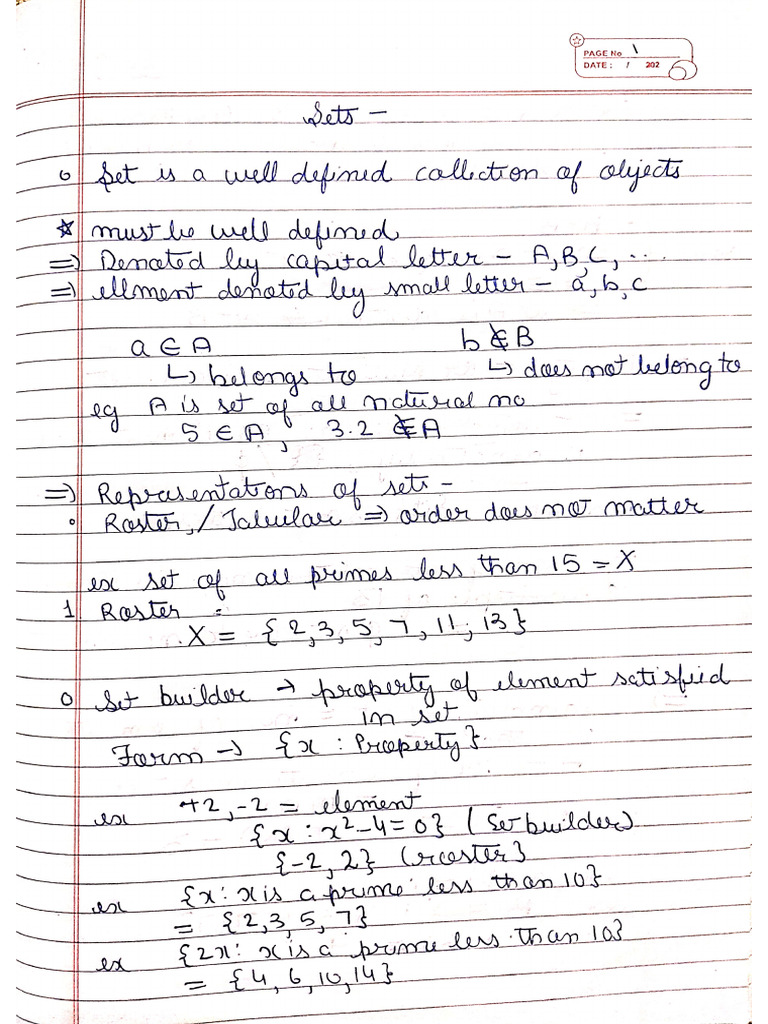 PAGE No 1
DATE : / 202
Sets -
o Set is a well defined collection of objects
☆ must be well defined
=) Denoted by capital letter - A, B, C, ...
=) ellment denoted by small letter - a, b, c
a ∈ A b ∉ B
↳ belongs to ↳ does not belong to
eg A is set of all natural no
5 ∈ A, 3.2 ∉ A
=) Representations of sets -
o Roster / Tabular => order does not matter
ex set of all primes less than 15 = X
1 Roster :
X = {2, 3, 5, 7, 11, 13}
o Set builder → property of element satisfied
in set
Form → {x : Property}
ex +2, -2 = element
{x : x²-4=0} (Set builder)
{-2, 2} (roster)
ex {x : x is a prime less than 10}
= {2, 3, 5, 7}
ex {2x : x is a prime less than 10}
= {4, 6, 10, 14}